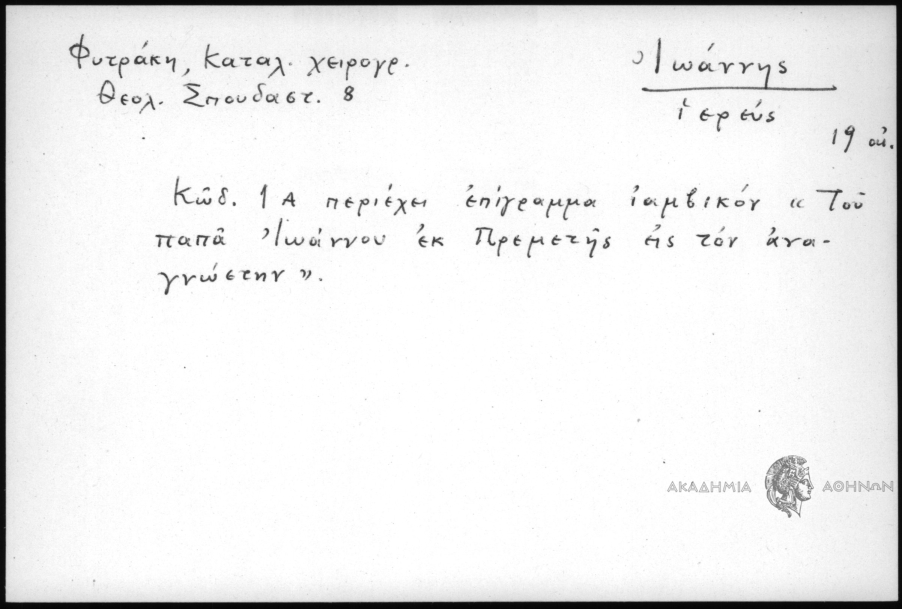 Φυτράκη, Καταλ. χειρογρ.
Θεολ. Σπουδαστ. 8
Ἰωάννης
ἱερεύς
19 αἰ.
Κῶδ. 1 Α περιέχει ἐπίγραμμα ἰαμβικόν « Τοῦ
παπᾶ Ἰωάννου ἐκ Πρεμετῆς εἰς τόν ἀνα-
γνώστην ».
ΑΚΑΔΗΜΙΑ ΑΘΗΝΩΝ